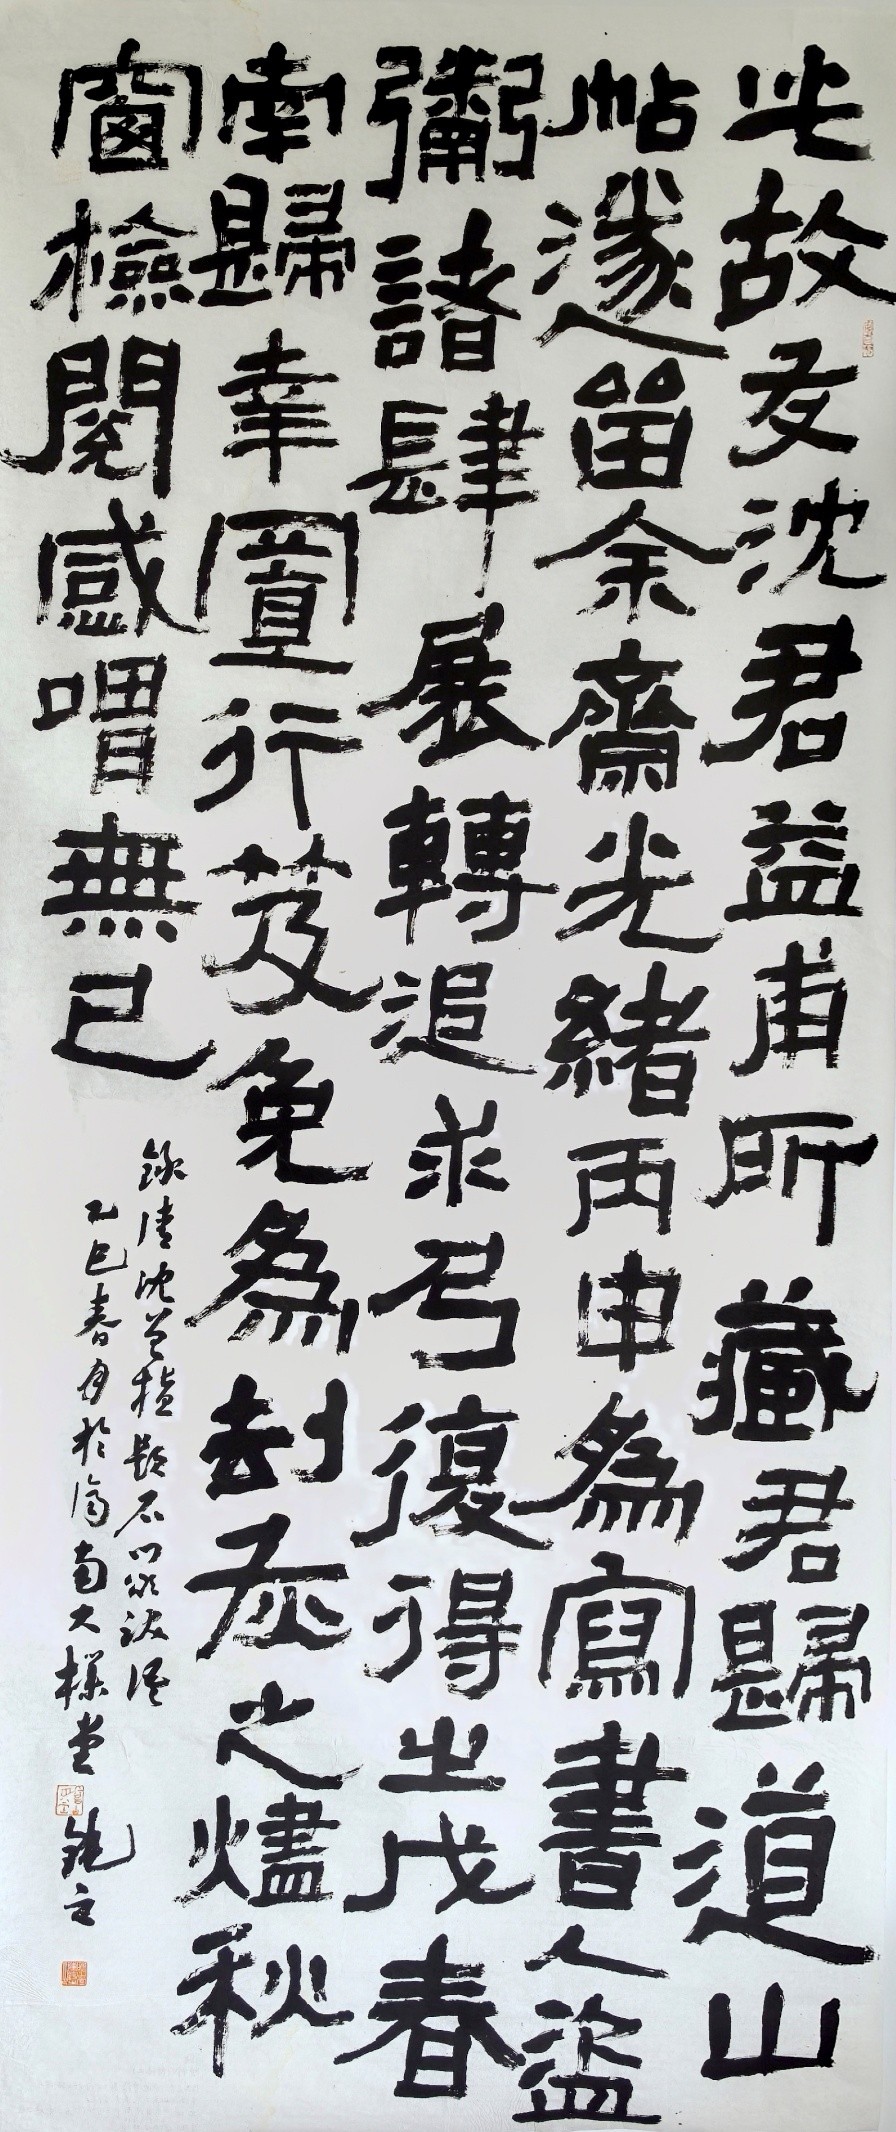 此故友沈君益甫所藏君歸道山
帖遂留余齋光緒丙申為寫書人盜
鬻諸肆展轉追求乃復得之戊春
南歸幸置行笈免為劫灰之燼秋
窗檢閱感喟無已
錄清沈曾植題石門頌跋語
乙巳春月於濟南大樸堂